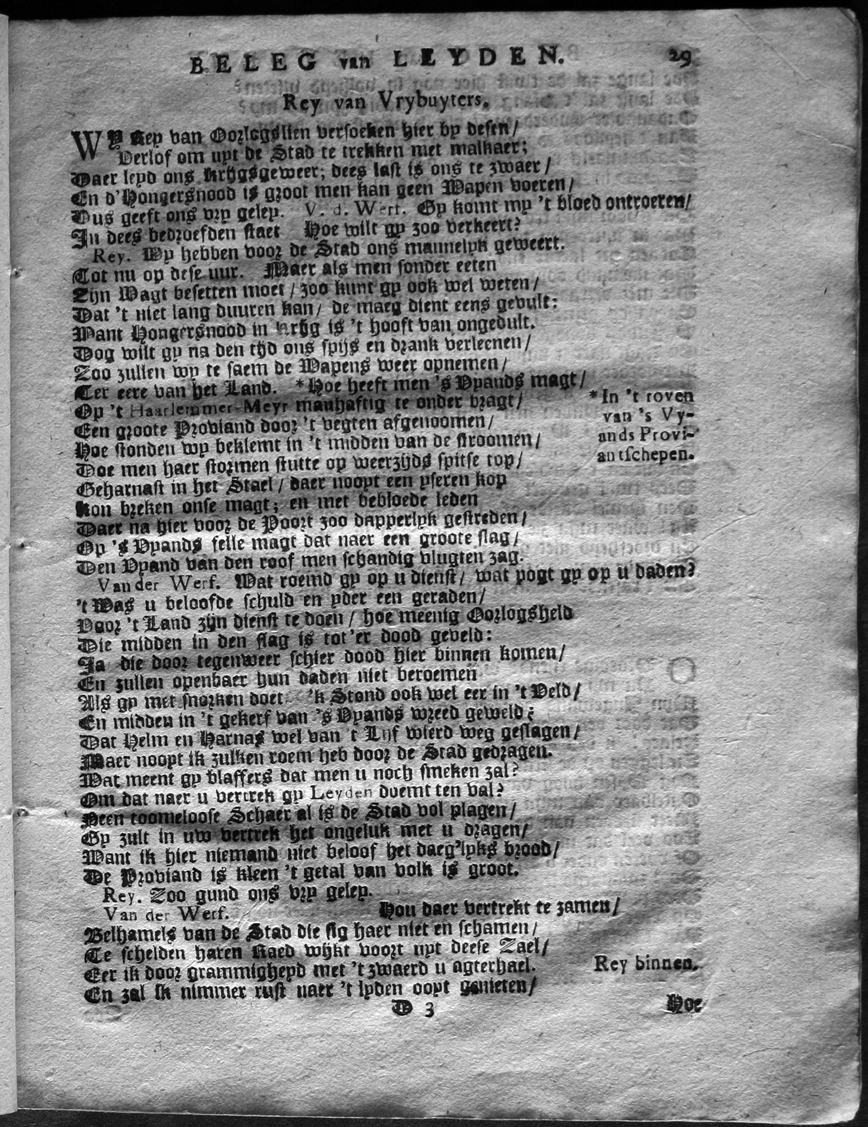 BELEG van LEYDEN. 29
Rey van Vrybuyters.
WY Rey van Oorlogslien versoeken hier by desen/
Verlof om uyt de Stad te trekken met malkaer;
Daer leyd ons krijgsgeweer; dees last is ons te zwaer/
En d'Hongersnood is groot men kan geen Wapen voeren/
Dus geeft ons vry geley. V. d. Werf. Gy komt my 't bloed ontroeren/
In dees bedroefden staet Hoe wilt gy zoo verkeert?
Rey. Wy hebben voor de Stad ons mannelyk geweert.
Tot nu op dese uur. Maer als men sonder eeten
Zijn Wagt besetten moet / zoo kunt gy ook wel weten/
Dat 't niet lang duuren kan/ de maeg dient eens gevult:
Want Hongersnood in krijg is 't hooft van ongedult.
Dog wilt gy na den tijd ons spijs en drank verleenen/
Zoo zullen wy te saem de Wapens weer opnemen/
Ter eere van het Land. *Hoe heeft men 's Vyands magt/
Op 't Haarlemmer-Meyr manhaftig te onder bragt/
*In 't roven
van 's Vy-
ands Provi-
antschepen.
Een groote Proviand door 't vegten afgenoomen/
Hoe stonden wy beklemt in 't midden van de stroomen/
Doe men haer stormen stutte op weerzijds spitse top/
Geharnast in het Stael / daer noopt een yseren kop
Kon breken onse magt; en met bebloede leden
Daer na hier voor de Poort zoo dapperlyk gestreden/
Op 's Vyands felle magt dat naer een groote slag/
Den Vyand van den roof men schandig vlugten zag.
Van der Werf. Wat roemd gy op u dienst/ wat pogt gy op u daden?
't Was u beloofde schuld en yder een geraden/
Voor 't Land zijn dienst te doen/ hoe meenig Oorlogsheld
Die midden in den slag is tot'er dood geveld:
Ja die door tegenweer schier dood hier binnen komen/
En zullen openbaer hun daden niet beroemen
Als gy met snorken doet. 'k Stond ook wel eer in 't Veld/
En midden in 't gekerf van 's Vyands wreed geweld;
Dat Helm en Harnas wel van 't Lijf wierd weg geslagen/
Maer noopt ik zulken roem heb door de Stad gedragen.
Wat meent gy blaffers dat men u noch smeken zal?
Om dat naer u vertrek gy Leyden doemt ten val?
Neen toomeloose Schaer al is de Stad vol plagen/
Gy zult in uw vertrek het ongeluk met u dragen/
Want ik hier niemand niet beloof het daeg'lyks brood/
De Proviand is kleen 't getal van volk is groot.
Rey. Zoo gund ons vry geley.
Van der Werf. Hou daer vertrekt te zamen/
Belhamels van de Stad die sig haer niet en schamen/
Te schelden haren Raed wijkt voort uyt deese Zael/
Eer ik door grammigheyd met 't zwaerd u agterhael. Rey binnen.
En zal ik nimmer rust naer 't lyden oopt genieten/
D 3 Hoe